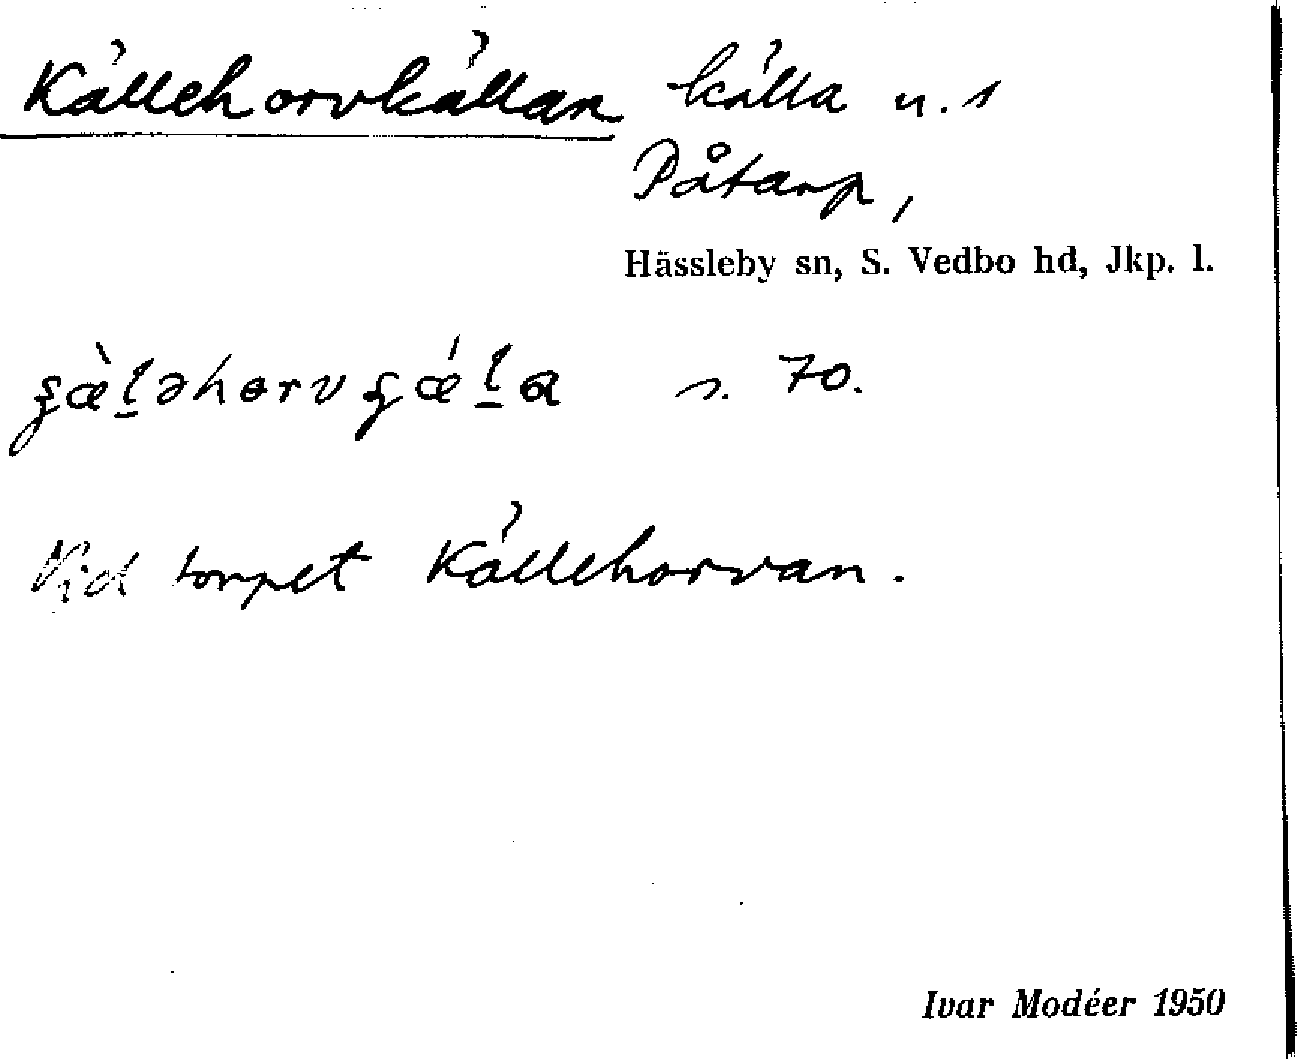 Källehorvkällan källa u. 1
Påtarp,
Hässleby sn, S. Vedbo hd, Jkp. l.
s. 70.
Vid torpet Källehorvan.
Ivar Modéer 1950